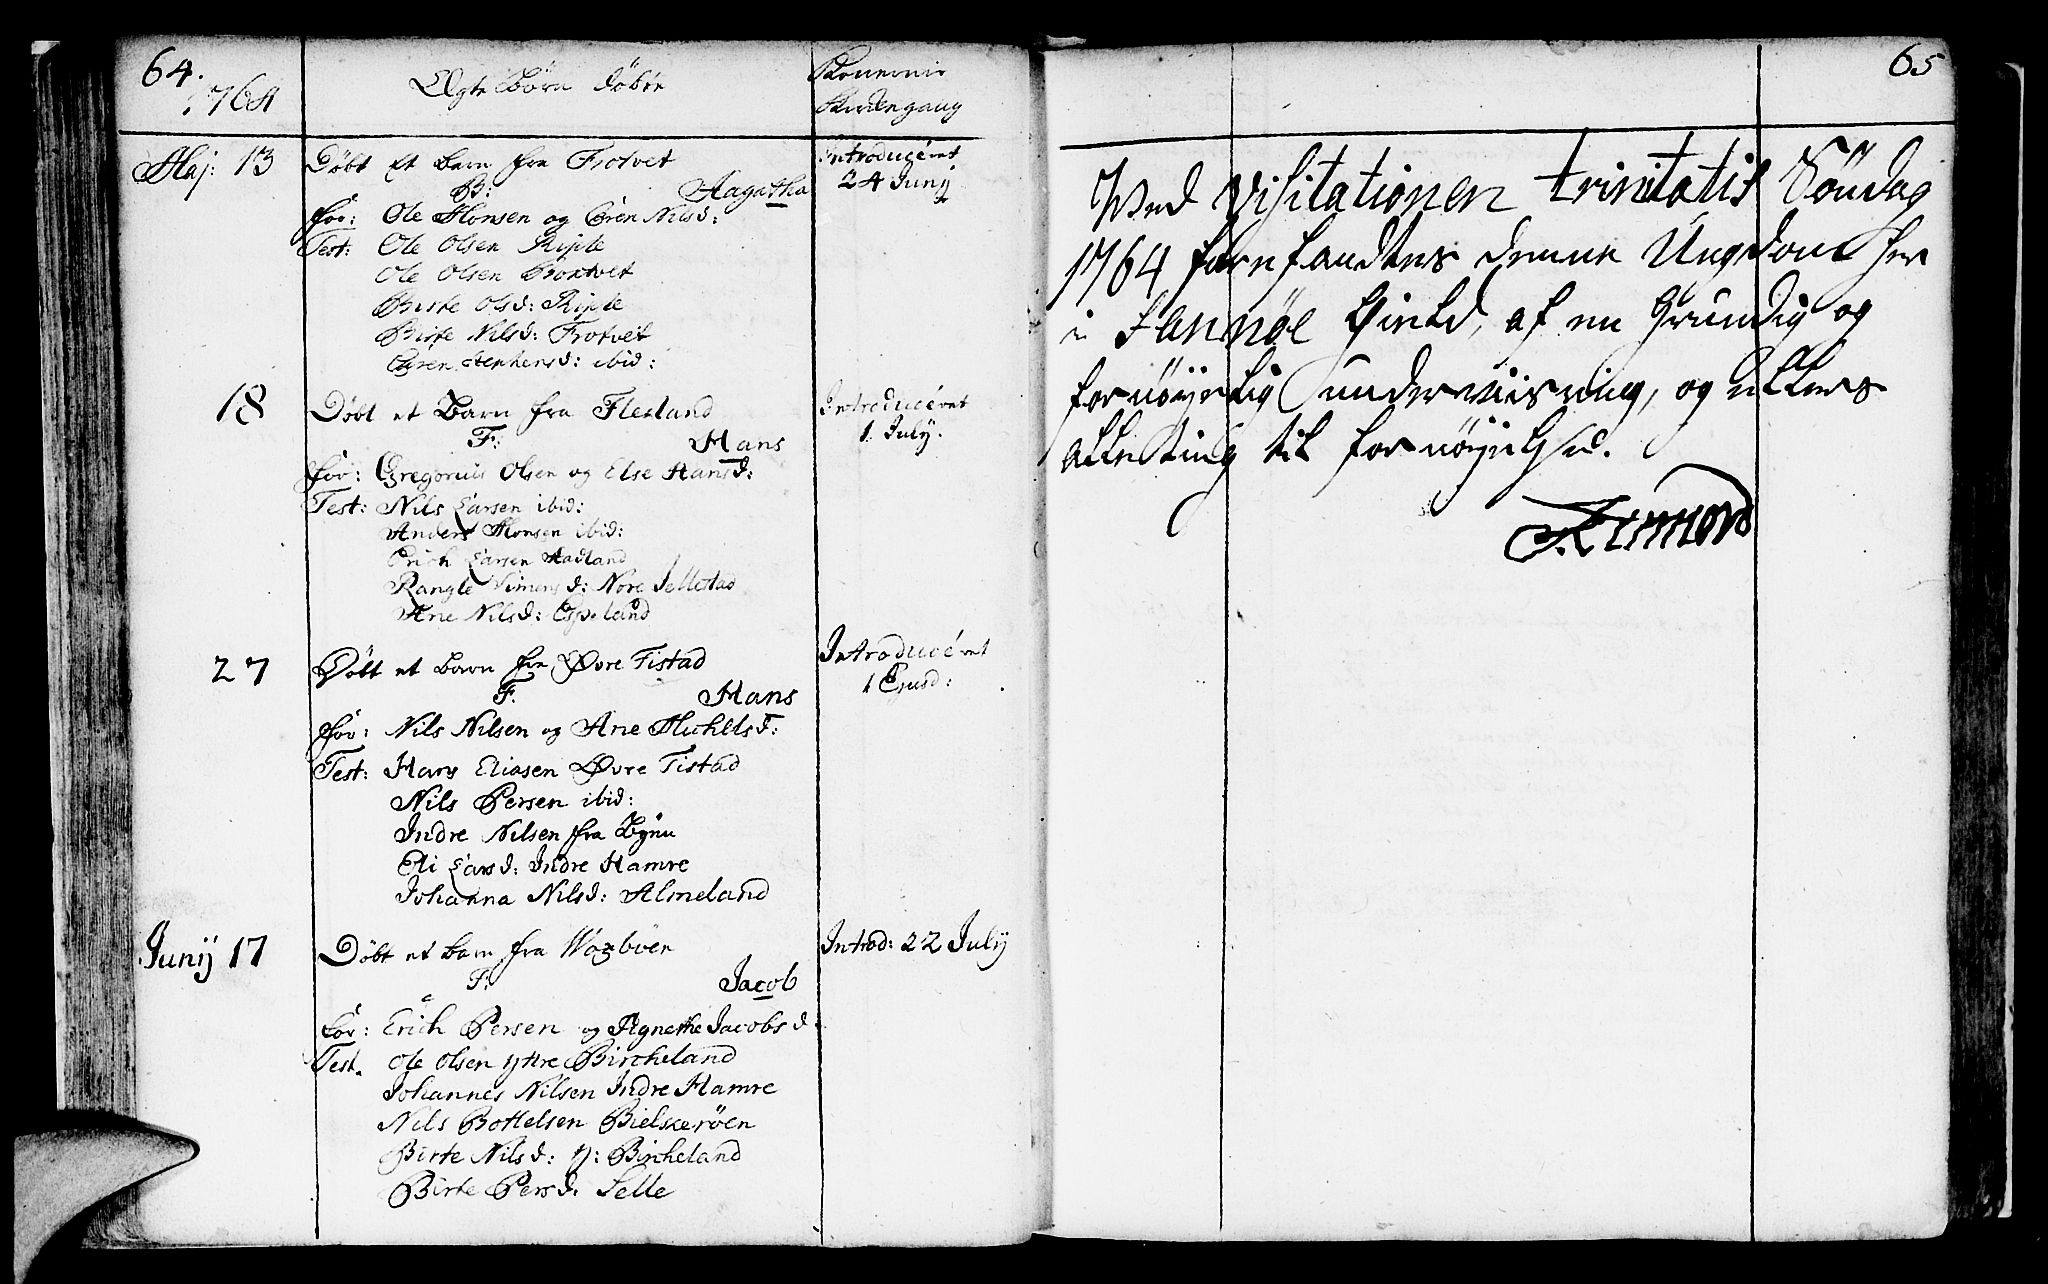 64.
1764
Ægte Børn døbte
Konernis
Kirckegang
Maj: 13
Døbt et Barn fra Trotvet
B:
Aagatha
For: Ole Monsen og Gøren Nilsd:
Test: Ole Olsen Riple
Ole Olsen
Birte Olsd: Riple
Birte Nilsd: Trotvet
Gøren Stephensd: ibid:
Introduceret
24 Junij
18
Døbt et Barn fra Flesland
F:
Hans
For: Gregorius Olsen og Else Hansd:
Test: Nils Larsen ibid:
Anders Monsen ibid:
Erich Larsen Aadland
Rangle Simensd: Nore Sellestad
Ane Nilsd: Espeland
Introduceret
1. July.
27
Døbt et Barn fra Øvre Tistad
F.
Hans
For: Nils Nilsen og Ane Michelsd:
Test: Hans Eliasen Øvre Tistad
Nils Persen ibid:
Indre Nilsen fra Byen
Eli Larsd: Indre Hamre
Johanna Nilsd: Almeland
Introduceret
1 Ejusd:
Junij 17
Døbt et Barn fra
F:
Jacob
For: Erich Persen og Agnethe Jacobsd:
Test. Ole Olsen yttre Bircheland
Johannes Nilsen Indre Hamre
Nils Bottelsen Bielskerøen
Birte Nilsd: y: Bircheland
Birte Persd: Selle
Introd: 22 July
65
Ved Visitationen trinitatis Søndag
1764 forefandtes denne Ungdom her
i Fannøe Gield, af en Grundig og
fornøyelig undervisning, og ellers
alle ting til fornøyelse.